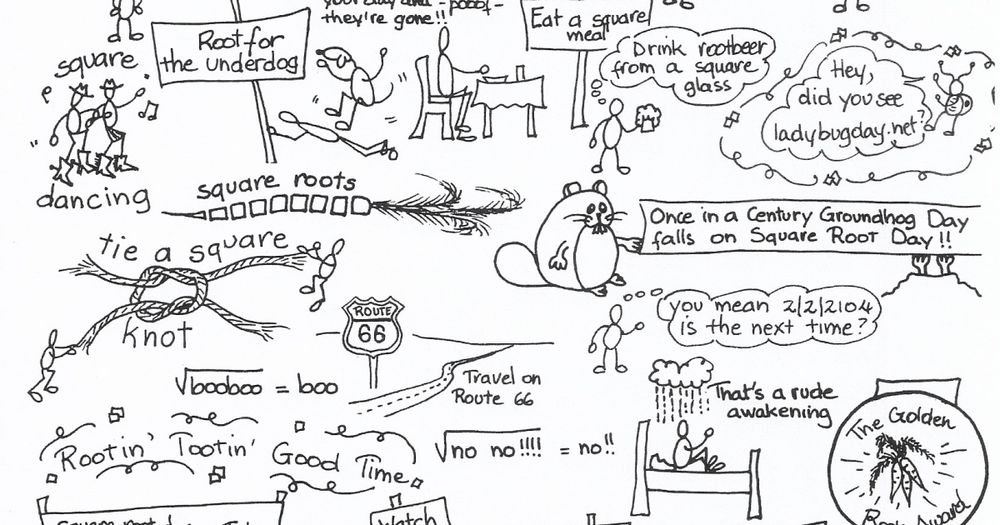 they're gone!!
Root for
the underdog
Eat a square
meal
Drink rootbeer
from a square
glass
Hey,
did you see
ladybugday.net?
square
dancing
square roots
Once in a Century Groundhog Day
falls on Square Root Day!!
tie a square
knot
you mean 2/2/2104
is the next time?
ROUTE
66
Travel on
Route 66
√booboo = boo
That's a rude
awakening
The Golden
Rootin' Tootin'
Good Time
√no no!!!! = no!!
Watch